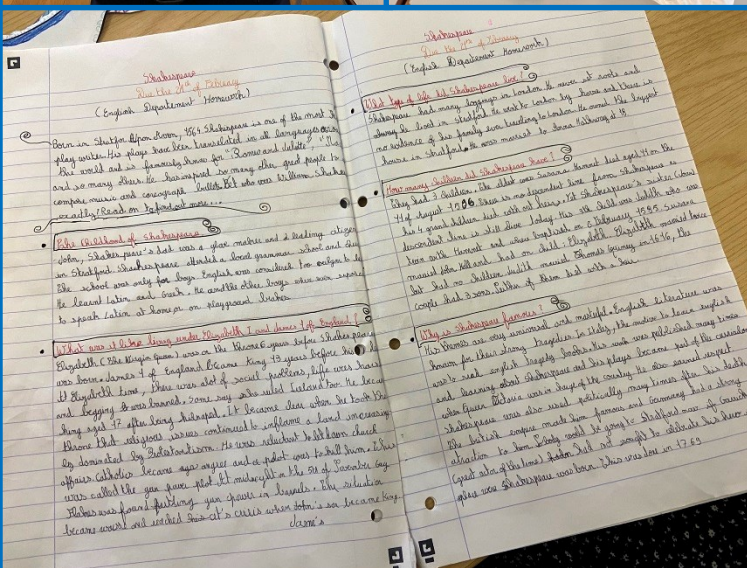 Shakespeare
Due the 11th of February
(English Departement Homework)
Born in Stratfor Upon Avon, 1564, Shakespeare is one of the most
play writer. His plays have been translated in all languages
the world and is famously known for "Romeo and Juliette",
and so many others. He has inspired so many other great people to
compose music and ballets. But who was William
exactly? Read on to find out more...
The Childhood of Shakespeare
John, Shakespeare's dad was a glove maker and a leading citizen
in Stratford. Shakespeare attended a local grammar school and
The school was only for boys. English was considered
He learnt Latin and Greek. He and the other boys
to speak Latin at home or on playground
What was it like living under Elizabeth I and James I of England?
Elizabeth (The Virgin Queen) was on the throne 6 years before Shakespeare
was born. James I of England became King 13 years before
At Elizabeth time, there was alot of social problems, life was
and begging was banned. Some say she ruled Ireland too. He became
king aged 37 after being kidnaped. It became clear when he took the
throne that religious issues continued to inflame a land increasing
ly dominated by Protestantism. He was reluctant to let church
affairs. Catholics became angry and a plot was to kill him. This
was called the gun power plot. At midnight on the 5th of November Guy
Flakes was found gun power in barrels. The situation
became worst and reached this at's crisis when John's son became King.
James's
Shakespeare
Due the 11th of February
(English Departement Homework)
What type of life did Shakespeare live?
Shakespeare had many loggings in London. He never set roots and
always lived in Stratford. He went to London by horse and there is
no evidence of his family ever heading to London. He owned the biggest
house in Stratford. He was married to Anna Hathaway at 18
How many children did Shakespeare have?
They had 3 children. The eldest was Susana. Hamnet died aged 11 on the
11 of August 1596. There is no descendent line from Shakespeare as
his 4 grand children died with out heirs. Yet Shakespeare's sister (Joan)
descendent line is still alive today. His 4th child was Judith who was
twin with Hamnet and was baptised on 2 February 1585. Susana
married John Hall and had on child, Elizabeth. Elizabeth married twice
but had no children. Judith married Thomas Quiney in 1616, the
couple had 3 sons. Neither of them died with a heir
Why is Shakespeare famous?
His themes are very universal and masteful. English literature was
known for their strong tragedies. In Italy, the motive to learn english
was to read english tragedy books. His work was published many times
and learning about Shakespeare and his plays became part of the curriculum
when Queen Victoria was in charge of the country. He also earned respect.
Shakespeare was also used politically many times after his death
The british empire made him famous and Germany had a strong
atraction to him. Nobody would be going to Stratford now if Garrick
(great actor of the time) hadn't sought to celebrate his hero
place were Shakespeare was born. This was done in 1769